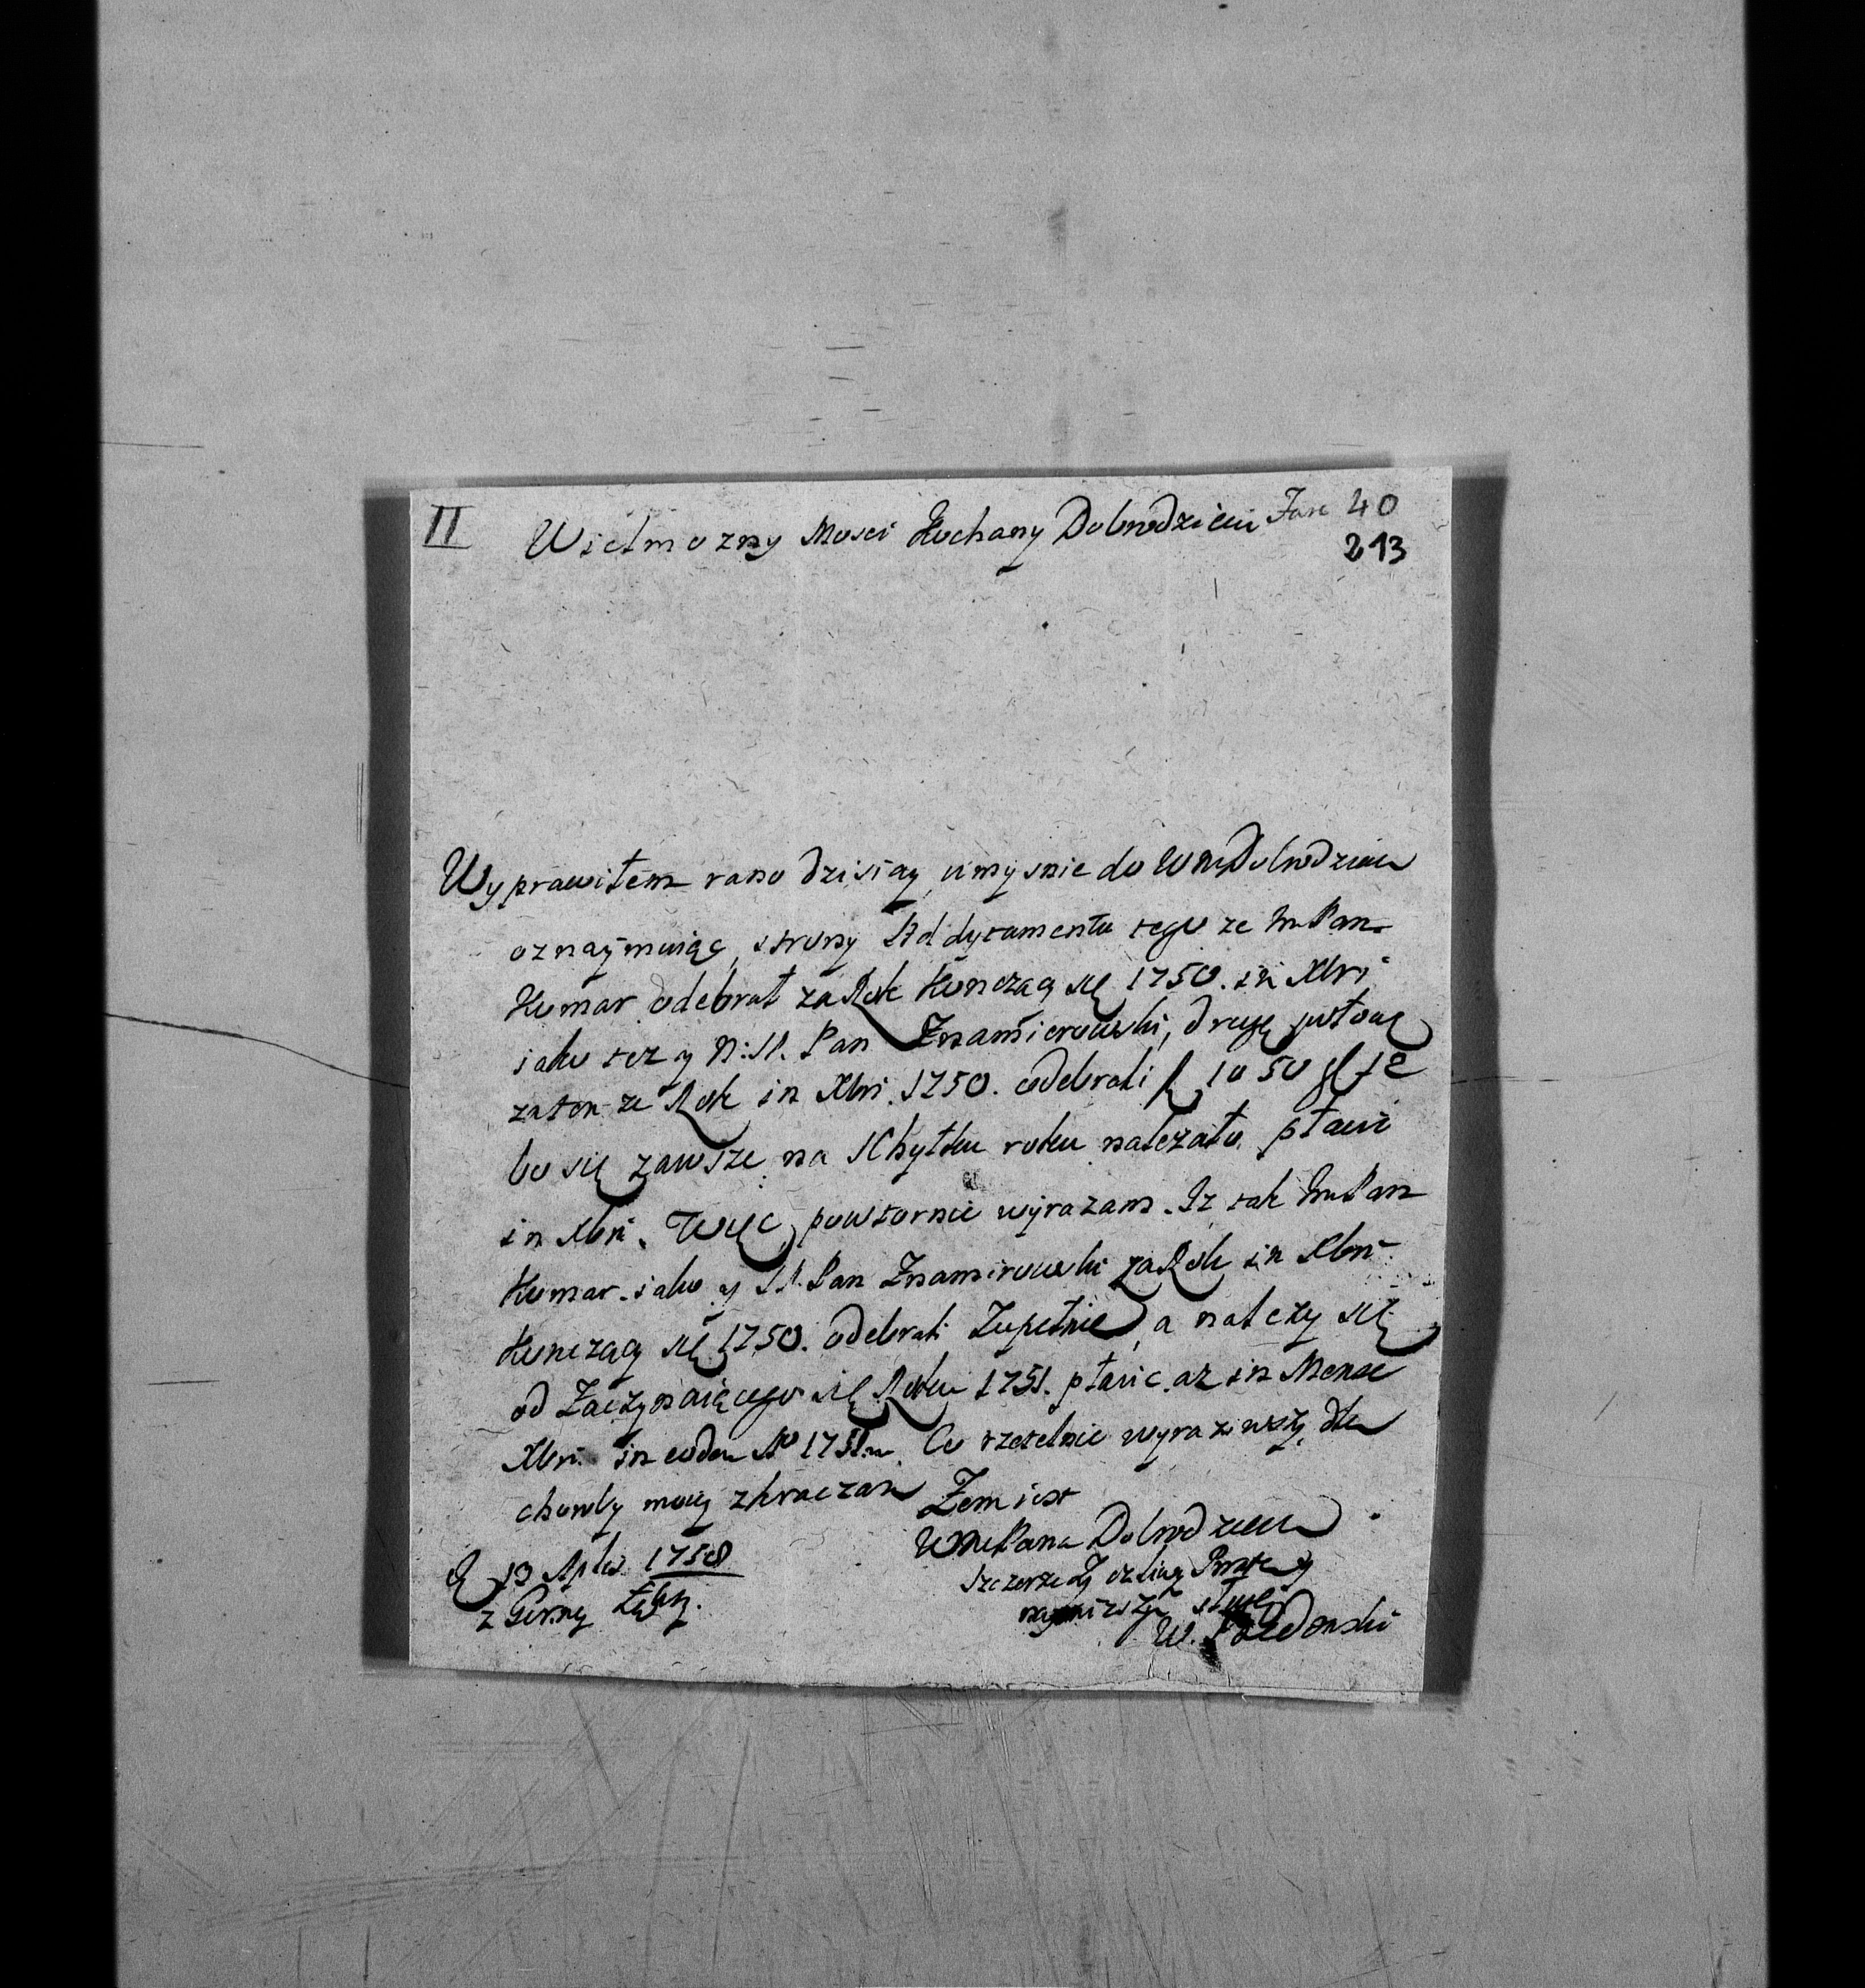 II Wielmozny Mosci Kochany Dobrodzieiu Fasc 40
213
Wyprawiłem rano dzisiay umysnie do WMDobrodzieia
oznaymuiąc, strony Addytamentu tego ze ImPan
Komar odebrał za Rok Kończący się 1750. in Xbri
iako tez y Pan Znamierowski, drugę połowę
za ten ze Rok in Xbri. 1750. odebrali 1050
bo się zawsze na Schyłku roku nalezało płacic
in Xbri. Więc powtornie wyrazam. Iz tak ImPan
Komar. iako y Pan Znamirowski za Rok in Xbri
Kończący się 1750. odebrali Zupełnie, a nalezy się
od Zaczynaiącego się Roku 1751. płacic az in Mense
Xbri. in eodem A° 1751. Co rzetelnie wyraziwszy, dla
choroby moiey zkraczam Zem iest
WMPana Dobrodzieia
szczerze y
naynizszym sługą
W.
D 13 1750
z